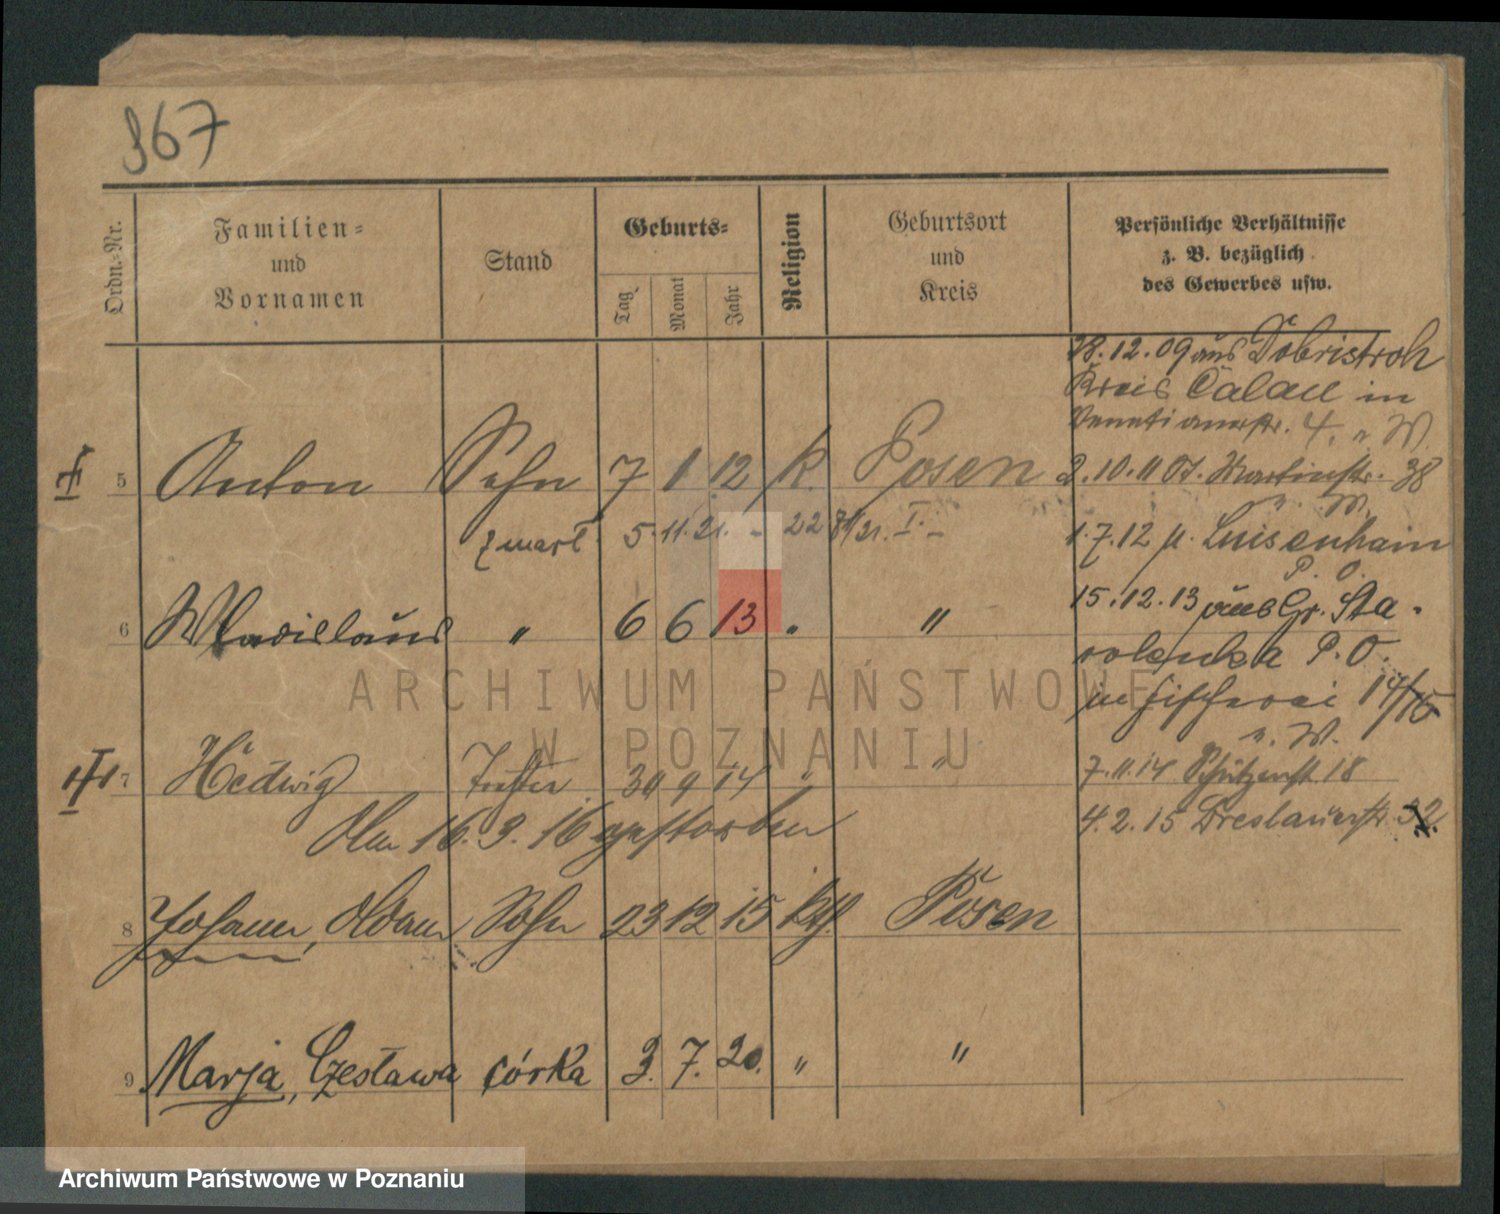 967
Ordn.-Nr.
Familien-
und
Vornamen
Stand
Geburts-
Tag
Monat
Jahr
Religion
Geburtsort
und
Kreis
Persönliche Verhältnisse
z. B. bezüglich
des Gewerbes usw.
28.12.09 aus Dobristroh
Kreis Calau in
Venetianerstr. 4. n. W.
II 5 Anton Sohn 7 1 12 k. Posen
2.10.11 St. Martinstr. 38
n. W.
zmarł 5.11.21. - 22 I. -
1.7.12 n. Luisenhain
P. O.
15.12.13 aus Gr. Sta-
6 Wladislaus " 6 6 13 " "
rolenka P. O.
in Fischerei 14/15
n. W.
III 7 Hedwig Tochter 30 9 14 " "
7.11.14 Schützenst 18
Am 16.9.16 gestorben
4.2.15 Breslauerstr. 32.
8 Johann, Adam Sohn 23 12 15 kth. Posen
9 Marja, Czesława córka 3. 7. 20. " "
ARCHIWUM PAŃSTWOWE
W POZNANIU
Archiwum Państwowe w Poznaniu